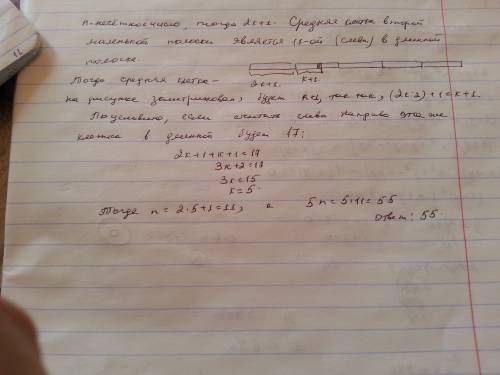 n-нечётное число, тогда 2k+1. Средняя клетка второй
маленькой полоски является 17-ой (слева) в длинной
полоске.
2k+1. k+1.
Тогда средняя клетка-
на рисунке заштрихована, будет k+1, так как, (2k:2)+1=k+1.
По условию, если считать слева направо эта же
клетка в длинной будет 17:
2k+1+k+1=17
3k+2=17
3k=15
k=5.
Тогда n=2·5+1=11, а 5n=5·11=55
Ответ: 55.